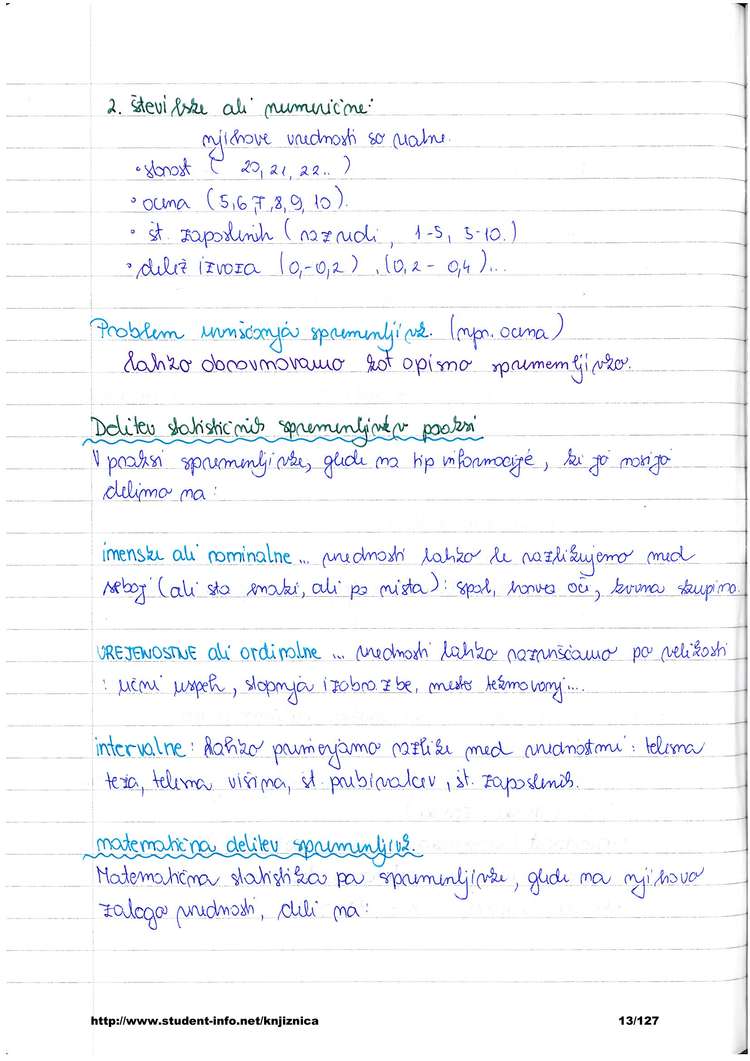 2. številske ali numerične:
njihove vrednosti so realne.
• starost ( 20, 21, 22.. )
• ocena (5,6,7,8,9,10).
• št. zaposlenih ( razredi, 1-5, 5-10.)
• delež izvoza (0,-0,2), (0,2 - 0,4)...
Problem uvrščanja spremenljivk. (npr. ocena)
lahko obravnavamo kot opisno spremenljivko.
Delitev statističnih spremenljivk v praksi
V praksi spremenljivke, glede na tip informacije, ki jo nosijo
delimo na:
imenske ali nominalne ... vrednosti lahko le razlikujemo med
seboj (ali sta enaki, ali pa nista): spol, barva oči, krvna skupina.
UREJENOSTNE ali ordinalne ... vrednosti lahko razvrščamo po velikosti
: učni uspeh, stopnja izobrazbe, mesto tekmovanj...
intervalne: lahko primerjamo razlike med vrednostmi: telesna
teža, telesna višina, št. prebivalcev, št. zaposlenih.
matematična delitev spremenljivk.
Matematična statistika pa spremenljivke, glede na njihovo
zalogo vrednosti, deli na:
http://www.student-info.net/knjiznica 13/127